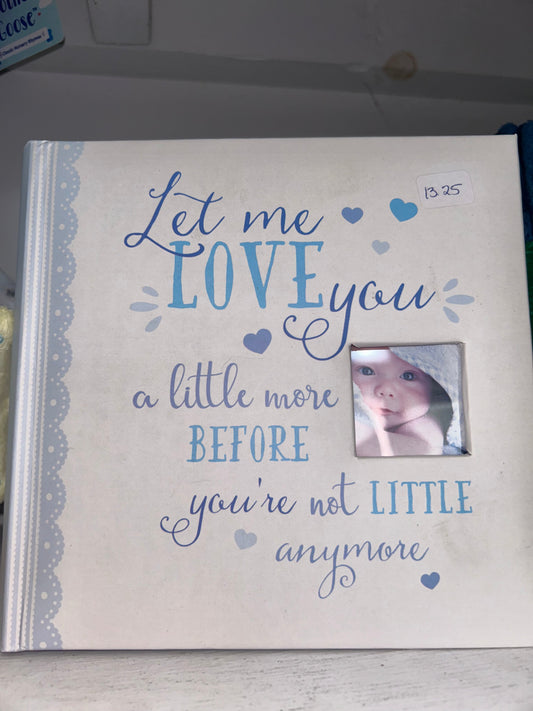 Goose"
Classic Nursery Rhymes
13.25
Let me
LOVE you
a little more
BEFORE
you're not LITTLE
anymore